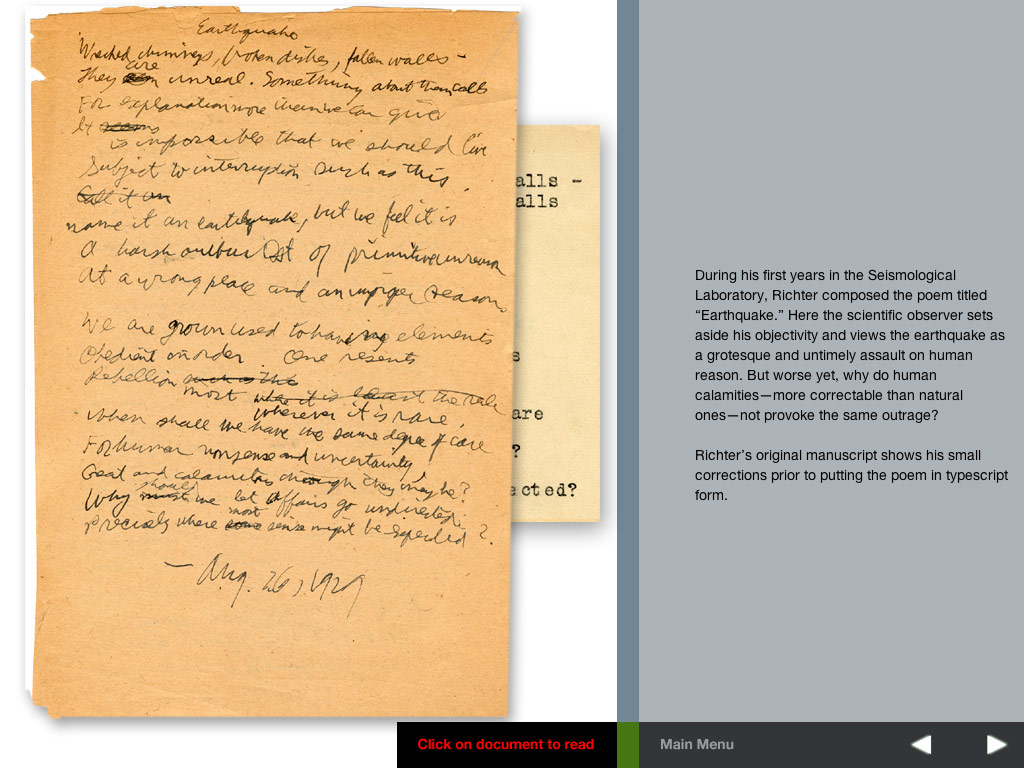 Earthquake
Wrecked chimneys, broken dishes, fallen walls –
are
They unreal. Something about them calls
For explanation more than we can give
It seems
is impossible that we should live
Subject to interruption such as this.
Call it an
name it an earthquake, but we feel it is
A harsh outburst of primitive unreason
At a wrong place and an improper season.
We are grown used to having elements
Obedient on order. One resents
Rebellion such as this
most where it is least the rule
wherever it is rare.
When shall we have the same degree of care
For human nonsense and uncertainty,
Great and calamitous though they may be?
should
Why must we let affairs go undirected
most
Precisely where some sense might be expected?
– Aug. 26, 1929
alls –
alls
s
are
?
ected?
During his first years in the Seismological
Laboratory, Richter composed the poem titled
“Earthquake.” Here the scientific observer sets
aside his objectivity and views the earthquake as
a grotesque and untimely assault on human
reason. But worse yet, why do human
calamities—more correctable than natural
ones—not provoke the same outrage?
Richter’s original manuscript shows his small
corrections prior to putting the poem in typescript
form.
Click on document to read
Main Menu